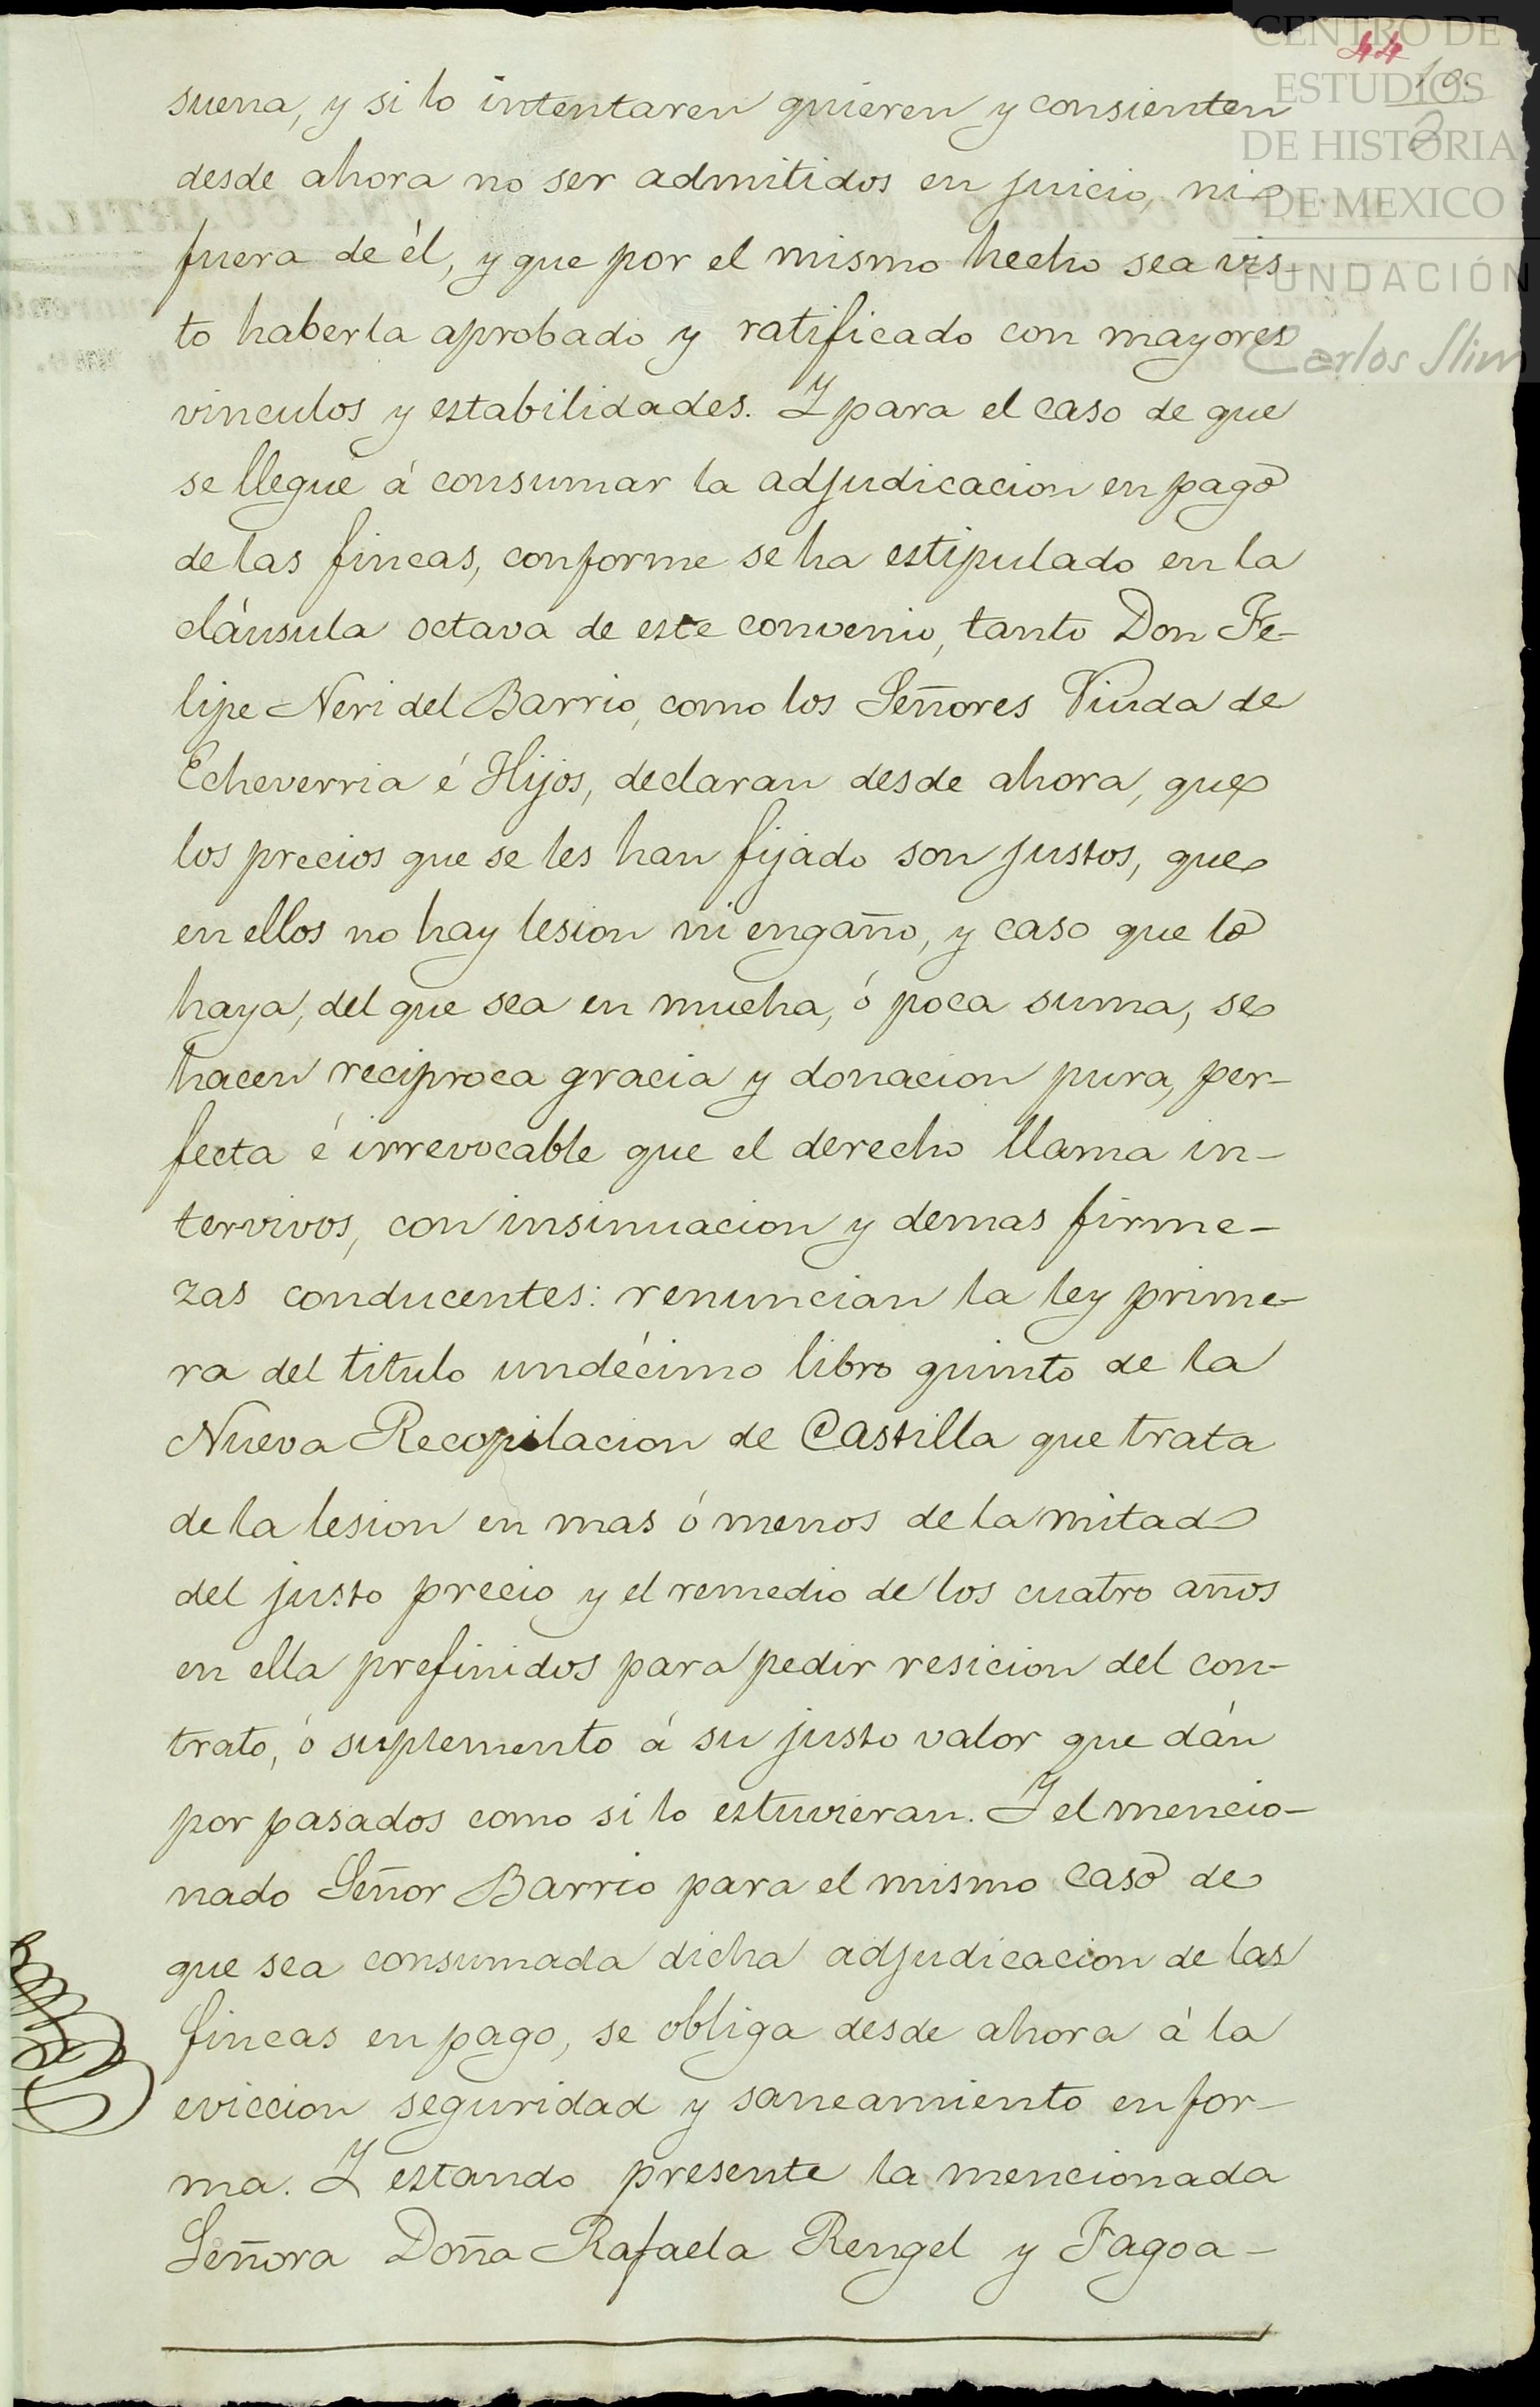 CENTRO DE
ESTUDIOS
DE HISTORIA
DE MEXICO
FUNDACIÓN
Carlos Slim
44
suena, y si lo intentaren quieren y consienten
desde ahora no ser admitidos en juicio, ni
fuera de él, y que por el mismo hecho sea vis-
to haberla aprobado y ratificado con mayores
vinculos y estabilidades. Y para el caso de que
se llegue á consumar la adjudicacion en pago
de las fincas, conforme se ha estipulado en la
cláusula octava de este convenio, tanto Don Fe-
lipe Neri del Barrio, como los Señores Viuda de
Echeverria é Hijos, declaran desde ahora, que
los precios que se les han fijado son justos, que
en ellos no hay lesion ni engaño, y caso que lo
haya, del que sea en mucha, ó poca suma, se
hacen reciproca gracia y donacion pura, per-
fecta é irrevocable que el derecho llama in-
tervivos, con insinuacion y demas firme-
zas conducentes: renuncian la ley prime-
ra del titulo undécimo libro quinto de la
Nueva Recopilacion de Castilla que trata
de la lesion en mas ó menos de la mitad
del justo precio y el remedio de los cuatro años
en ella prefinidos para pedir resicion del con-
trato, ó suplemento á su justo valor que dán
por pasados como si lo estuvieran. Y el mencio-
nado Señor Barrio para el mismo caso de
que sea consumada dicha adjudicacion de las
fincas en pago, se obliga desde ahora á la
eviccion seguridad y saneamiento en for-
ma. Y estando presente la mencionada
Señora Doña Rafaela Rengel y Fagoa-